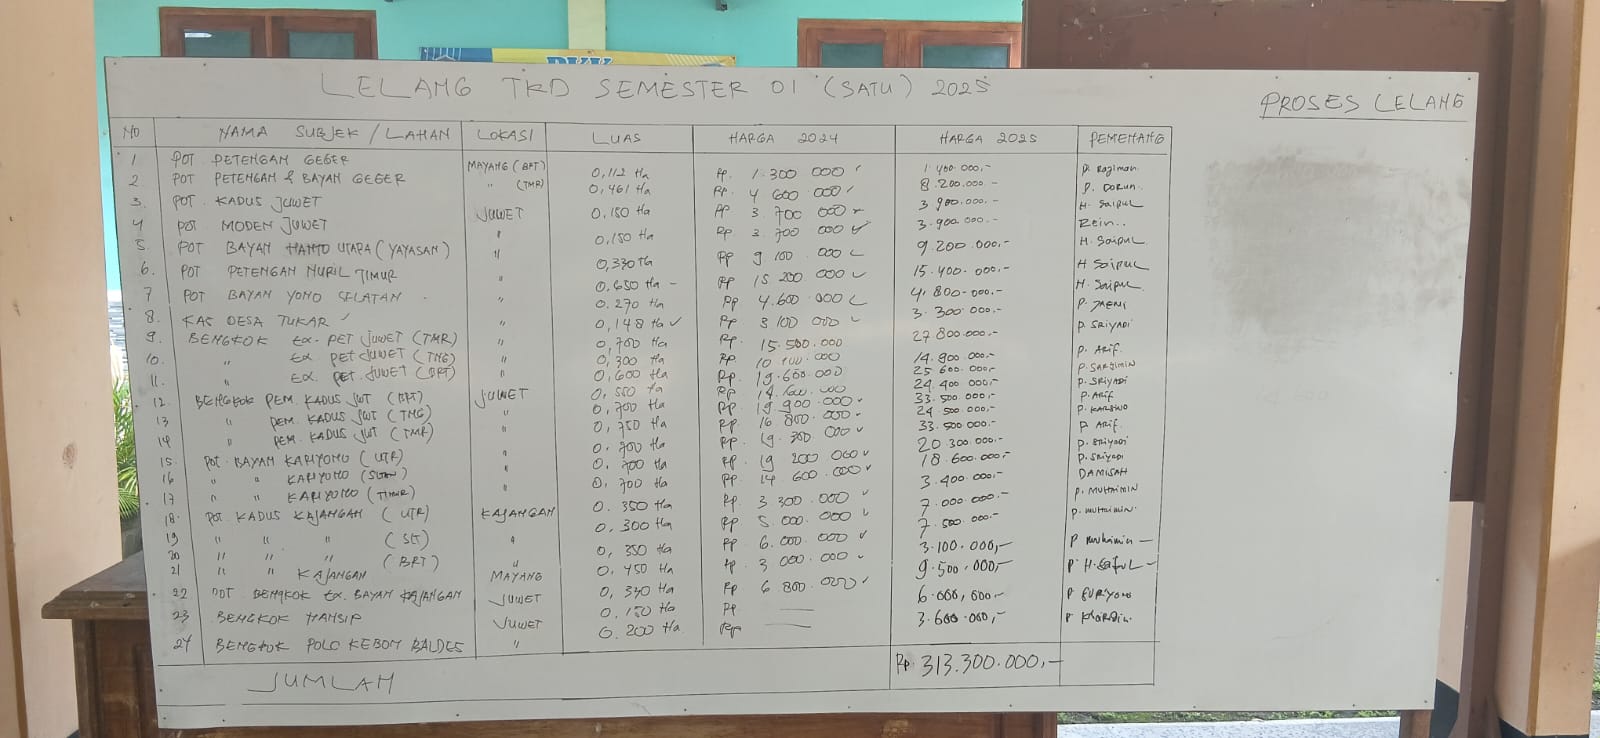 LELANG TKD SEMESTER 01 (SATU) 2025
PROSES LELANG
NO NAMA SUBJEK / LAHAN LOKASI LUAS HARGA 2024 HARGA 2025 PEMENANG
1 POT PETENGAN GEGER MAYANG (BRT) 0,112 Ha Rp. 1.300 000 1.400 000,- P. Rajiman
2. POT PETENGAN & BAYAN GEGER " (TMR) 0,461 Ha Rp. 4 600 000 8.200.000.- P. DORUN
3. POT. KADUS JUWET JUWET 0,150 Ha Rp 3.700 000 3 900.000.- H. Saipul
4 POT MODEN JUWET " 0,150 Ha Rp 3.700 000 3.900 000.- Rein..
5. POT BAYAN HANTO UTARA (YAYASAN) " 0,330 Ha Rp 9 100 000 9.200.000.- H. Saipul
6. POT PETENGAN NURIL TIMUR " 0,650 Ha - Rp 15 200 000 15.400.000.- H Saipul
7 POT BAYAN YONO SELATAN " 0.270 Ha Rp 4.600 000 4.800.000.- H. Saipul
8. KAS DESA TUKAR " 0,148 Ha Rp 3 100 000 3.300.000.- P. JAENI
9. BENGKOK EX. PET JUWET (TMR) " 0,700 Ha Rp. 15.500.000 27 800.000.- P SRIYADI
10. " EX PET JUWET (TNG) " 0,300 Ha Rp 10 100.000 14.900 000.- P. Arif.
11. " EX. PET. JUWET (BRT) " 0,600 Ha Rp. 19.600 000 25 600 000.- P. SARJIMIN
12 BENGKOK PEM. KADUS JWT (BRT) JUWET 0,550 Ha Rp 14.600.000 24 400 000.- P. SRIYADI
13 " PEM. KADUS JWT (TNG) " 0,700 Ha Rp 19 900 000 33.500 000.- P. Arif
14 " PEM. KADUS JWT (TMR) " 0,750 Ha Rp. 16.800 000 24 500 000.- P. KARSNO
15. POT. BAYAN KARIYONO (UTR) " 0.700 Ha Rp. 19.300 000 33.500 000.- P Arif.
16 " " KARIYONO (SLTN) " 0.700 Ha Rp. 19 200 000 20.300 000.- P. Sriyadi
17 " " KARIYONO (TIMUR) " 0.700 Ha Rp. 14 600.000 18.600.000.- P. Sriyadi
18. POT. KADUS KAJANGAN (UTR) KAJANGAN 0.350 Ha Rp. 3 300 000 3.400 000.- DAMISAH
19 " " " (SLT) " 0.300 Ha Rp. 5.000.000 7.000 000.- P. MUHAIMIN
20 " " " (BRT) " 0,350 Ha Rp. 6.000.000 7.500 000.- P. MUHAIMIN.
21 " " KAJANGAN MAYANG 0.450 Ha Rp. 3 000 000 3.100.000,- P Muhaimin -
22 POT BENGKOK EX. BAYAN KAJANGAN JUWET 0,330 Ha Rp. 6 800.000 9.500.000,-
23 BENGKOK HANSIP JUWET 0.150 Ha Rp — 6.000,000 -
24 BENGKOK POLO KEBON BALDES " 0.200 Ha Rp — 3.600.000,-
JUMLAH Rp. 313.300.000,-